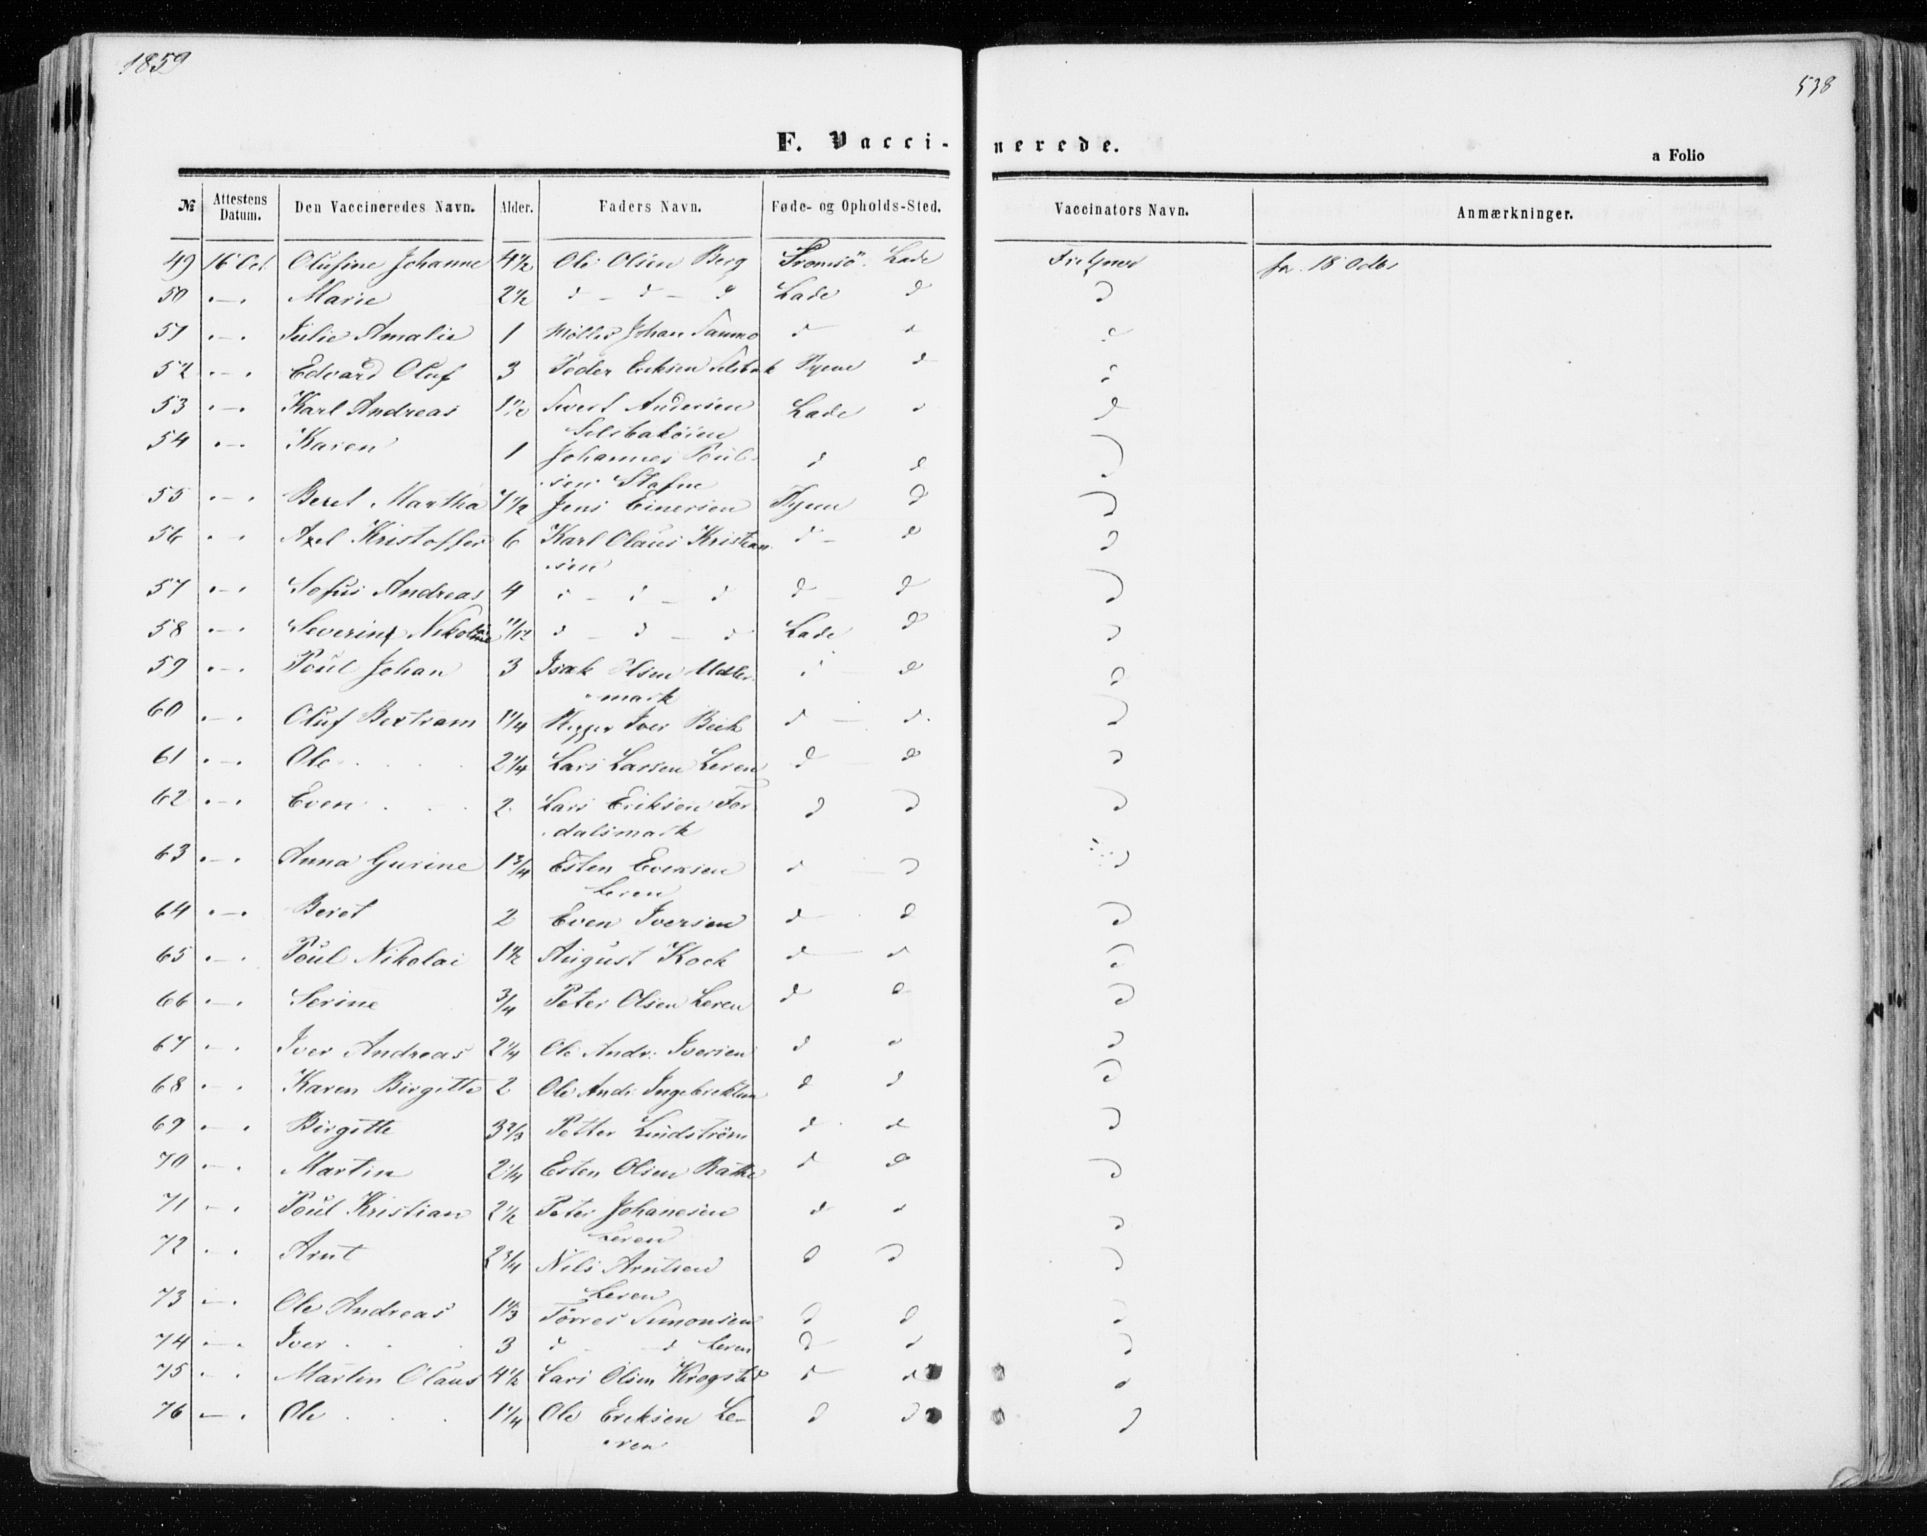 1859
538
F. Vaccinerede.
a Folio
№ Attestens Datum. Den Vaccineredes Navn. Alder. Faders Navn. Føde- og Opholds-Sted. Vaccinators Navn. Anmærkninger.
49 16 Oct Olufine Johanne 4 1/2 Ole Olsen Berg Tromsö Lade 18 Octbr
50 — Marie 2 1/2 d — d — d Lade d d
51 — Julie Amalie 1 Møller Johan d d d
52 — Edvard Oluf 3 Peder Eriksen d d
53 — Karl Andreas 1 1/2 Sivert Andersen Lade d d
Selsbakøien
54 — Karen 1 Johannes Poul- d d d
sen Stafne
55 — Beret Martha 7 1/2 Jens Einersen d d
56 — Axel Kristoffer 6 Karl Olaus Kristian- d d d
sen
57 — Sofus Andreas 4 d — d — d d d d
58 — Severine Nikoline 11/12 d — d — d Lade d d
59 — Poul Johan 3 Isak Olsen d d d
mark
60 — Oluf Bertram 1 1/4 Iver Beck d d d
61 — Ole 2 1/4 Lars Larsen Leren d d d
62 — Even 2 Lars Eriksen For- d d d
dalsmark
63 — Anna Gurine 1 3/4 Esten Evensen d d d
Leren
64 — Beret 2 Even Iversen d d d
65 — Poul Nikolai 1 1/2 August Kock d d d
66 — Serine 3/4 Peter Olsen Leren d d d
67 — Iver Andreas 2 1/4 Ole Andr: Iversen d d d
68 — Karen Birgitte 2 Ole Andr: Ingebriktsen d d d
69 — Birgitte 3 2/3 Petter Lindstrøm d d d
70 — Martin 2 1/4 Esten Olsen d d d
71 — Poul Kristian 2 1/2 Peter Johanesen d d d
Leren
72 — Arnt 2 3/4 Nils Arntsen d d d
Leren
73 — Ole Andreas 1 1/3 Torres Simonsen d d d
74 — Iver 3 d — d Leren d d d
75 — Martin Olaus 4 1/2 Lars Olsen Krogstd d d d
76 — Ole 1 1/4 Ole Eriksen Le- d d d
ren